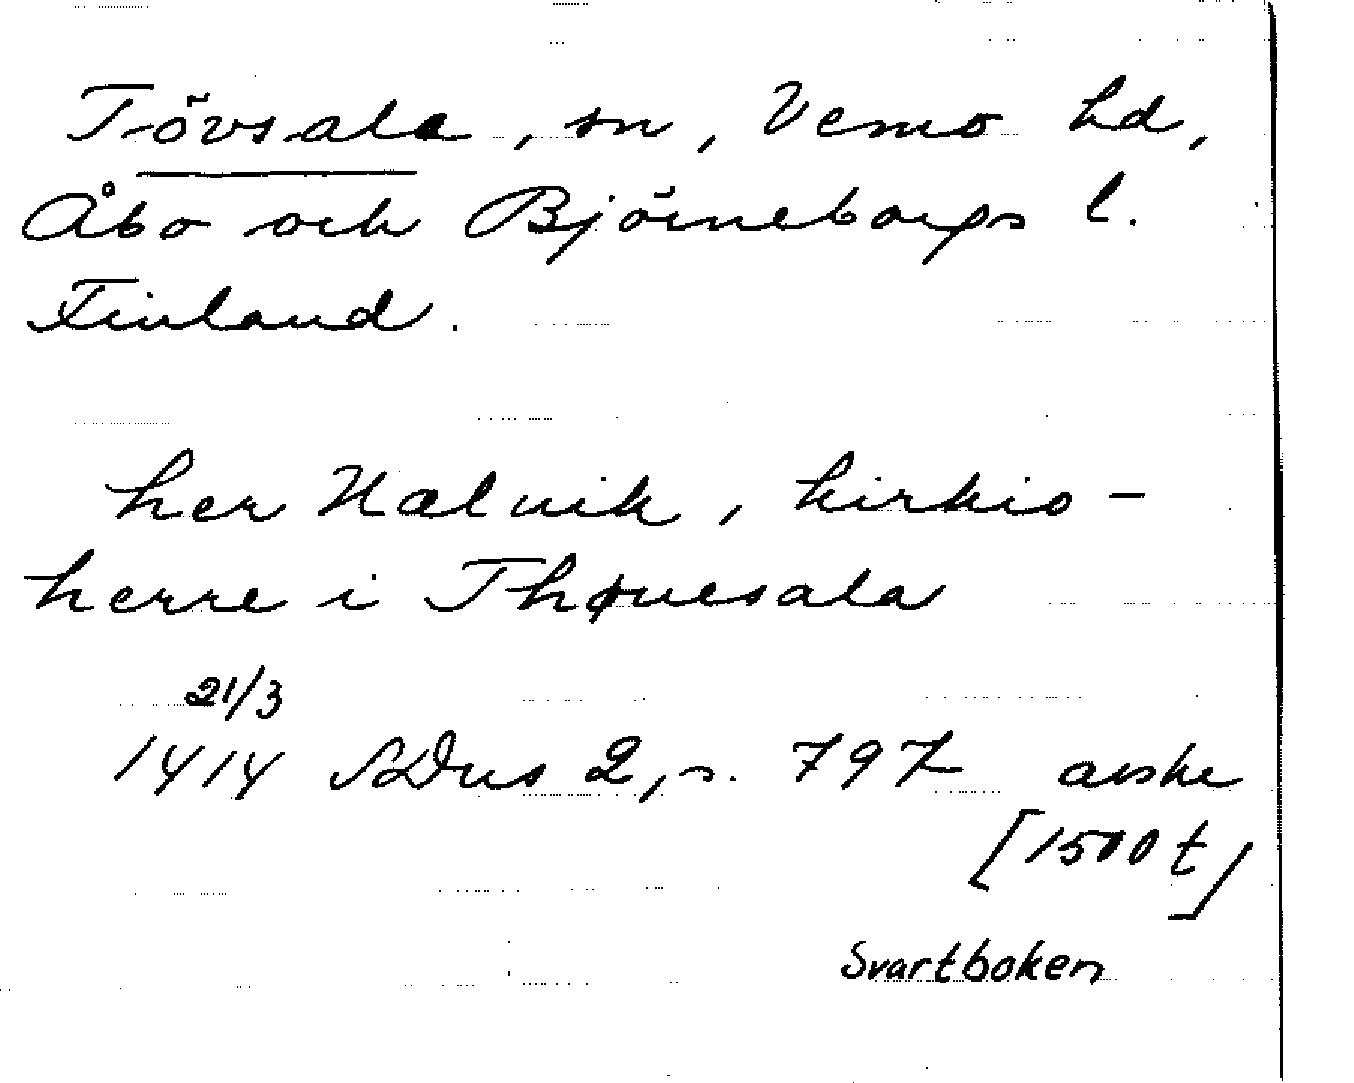 Tövsala, sn, Vemo hd,
Åbo och Björneborgs l.
Finland.
her Halvik, kirkio-
herre i Thøuesala
21/3
1414 SDns 2, s. 797 avskr
[1500 t]
Svartboken